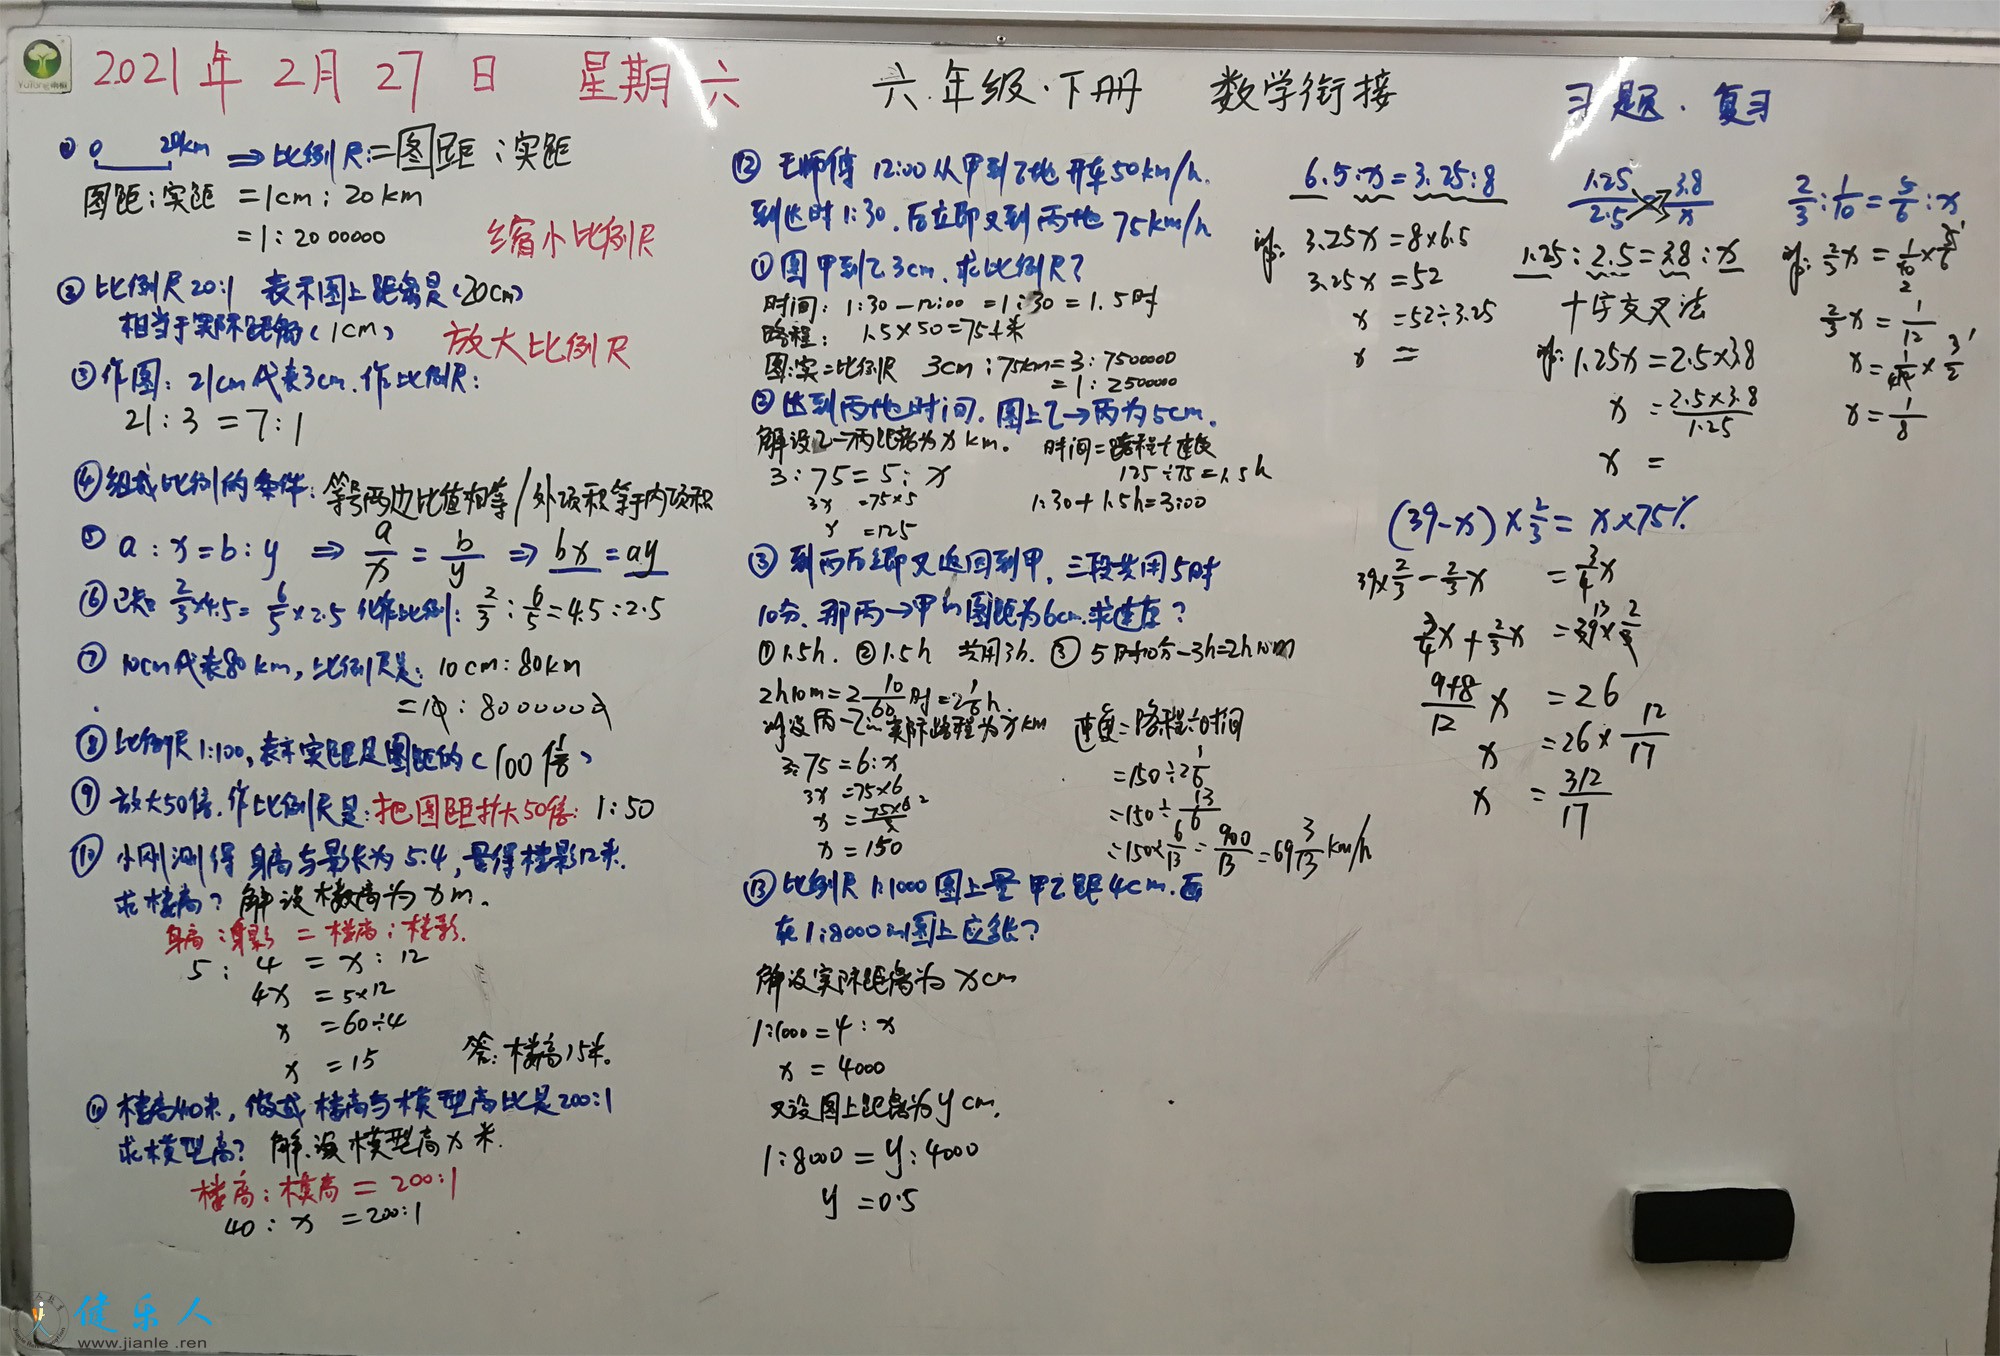 2021年2月27日 星期六
六年级·下册 数学衔接
习题·复习
① 0 20km ⇒ 比例尺=图距:实距
图距:实距 =1cm:20km
=1:2000000
缩小比例尺
② 比例尺20:1 表示图上距离是(20cm)
相当于实际距离(1cm)
放大比例尺
③ 作图:21cm代表3cm.作比例尺:
21:3=7:1
④ 组成比例的条件:等号两边比值相等/外项积等于内项积
⑤ a:x=b:y ⇒ a/x = b/y ⇒ bx=ay
⑥ 已知 2/3×4.5= 6/5×2.5 化作比例: 2/3:6/5=4.5:2.5
⑦ 10cm代表80km,比例尺是: 10cm:80km
=10:8000000
⑧ 比例尺1:100,表示实距是图距的(100倍)
⑨ 放大50倍.作比例尺是:把图距扩大50倍: 1:50
⑩ 小刚测得 身高与影长为5:4,量得楼影12米.
求楼高? 解设楼高为xm.
身高:身影 = 楼高:楼影.
5:4=x:12
4x=5×12
x=60÷4
x=15
答:楼高15米。
⑪ 楼高40米,做成楼高与模型高比是200:1
求模型高? 解:设模型高x米.
楼高:模高=200:1
40:x=200:1
⑫ 王师傅 12:00从甲到乙地 开车50km/h.
到达时1:30.后立即又到丙地 75km/h
① 图甲到乙3cm.求比例尺?
时间: 1:30—12:00 =1:30=1.5时
路程: 1.5×50=75千米
图:实=比例尺 3cm:75km=3:7500000
=1:2500000
② 达到丙地时间.图上乙→丙为5cm.
解设乙→丙距离为xkm. 时间=路程÷速度
3:75=5:x 125÷75=1.5h
3x=75×5 1:30+1.5h=3:00
x=125
③ 到丙后立即又返回到甲,三段共用5时
10分.那丙→甲的图距为6cm.求速度?
①1.5h. ②1.5h 共用3h. ③ 5时10分-3h=2h10m
2h10m=2 10/60时=2 1/6h.
解设丙→乙的实际路程为xkm 速度=路程÷时间
3:75=6:x =150÷2 1/6
3x=75×6 =150÷13/6
x=75×6/3 =150×6/13=900/13=69 3/13km/h
x=150
⑬ 比例尺1:1000图上量 甲乙距4cm.画
在1:8000的图上应多长?
解设实际距离为xcm
1:1000=4:x
x=4000
又设图上距离为ycm.
1:8000=y:4000
y=0.5
6.5:x=3.25:8
解: 3.25x=8×6.5
3.25x=52
x=52÷3.25
x=
1.25/2.5 3.8/x
1.25:2.5=3.8:x
十字交叉法
解:1.25x=2.5×3.8
x=2.5×3.8/1.25
x=
2/3:1/10=5/6:x
解: 2/3x=1/10×5/6
2/3x=1/12
x=1/12×3/2
x=1/8
(39-x)×2/3=x×75%
39×2/3-2/3x=3/4x
3/4x+2/3x=39×2/3
9+8/12 x=26
x=26×12/17
x=312/17
健乐人
www.jianle.ren